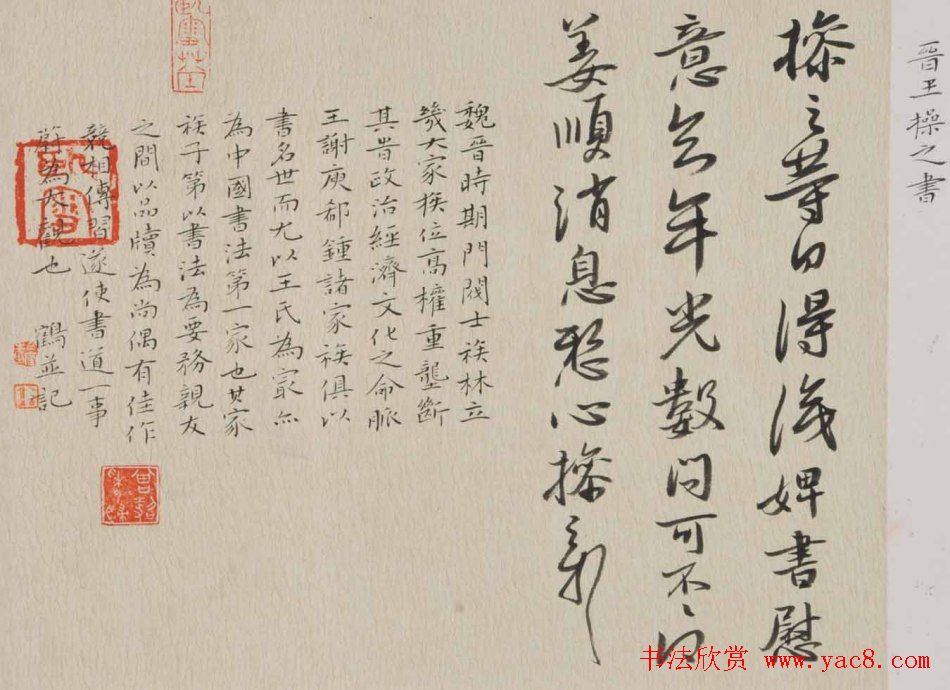 晉王操之書
操之等日得識婢書慰
意今年光數問可不〻得
姜順消息懸心操之
魏晉時期門閥士族林立
幾大家族位高權重壟斷
其貴政治經濟文化之命脈
王謝庾郗鍾諸家族俱以
書名世而尤以王氏為最亦
為中國書法第一家也其家
族子第以書法為要務親友
之間以品牘為尚偶有佳作
競相傳習遂使書道一事
蔚為大觀也 鶴並記
书法欣赏 www.yac8.com